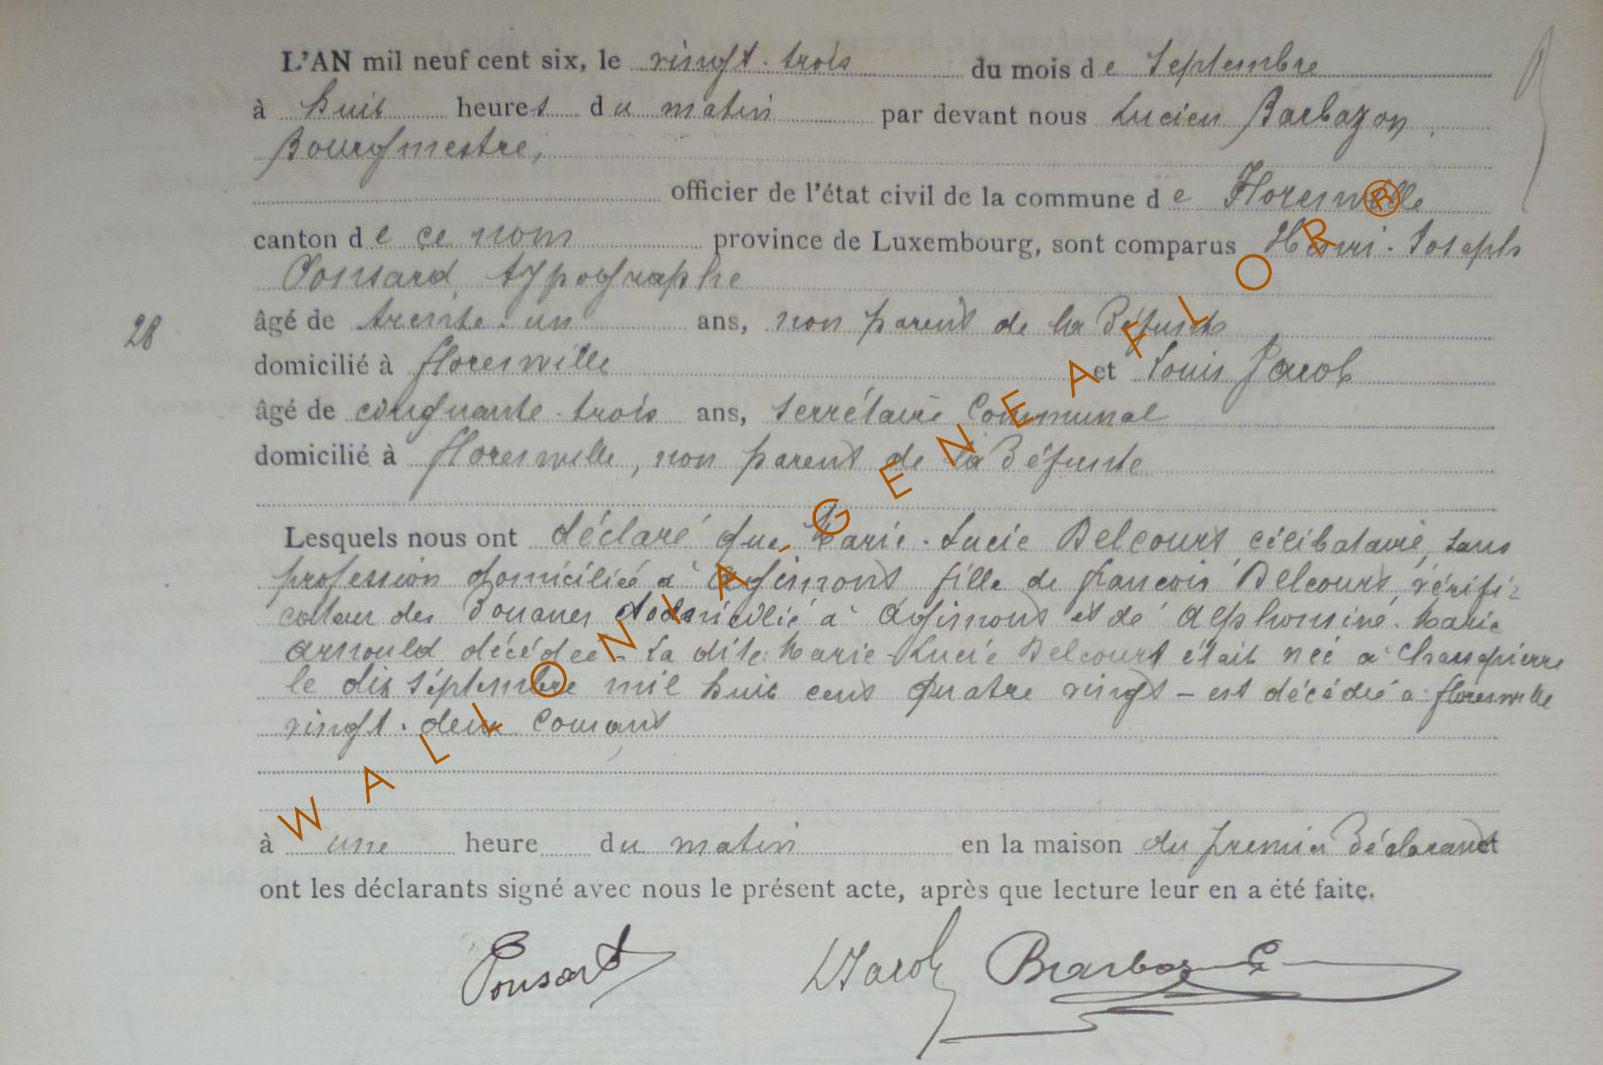 L'AN mil neuf cent six, le vingt-trois du mois de Septembre
à huit heures du matin par devant nous Lucien Barbazon,
Bourgmestre,
officier de l'état civil de la commune de Florenville
canton de ce nom province de Luxembourg, sont comparus Henri-Joseph
Ponsard, typographe
28 âgé de trente-un ans, non parent de la défunte
domicilié à Florenville et Louis Jacob
âgé de cinquante-trois ans, secrétaire communal
domicilié à Florenville, non parent de la défunte
Lesquels nous ont déclaré que Marie-Lucie Delcourt célibataire, sans
profession domiciliée à Agimont fille de François Delcourt, vérifi-
cateur des Douanes domicilié à Agimont et de Alphonsine-Marie
Arnould décédée - La dite Marie-Lucie Delcourt était née à Champierre
le dix septembre mil huit cent quatre vingt - est décédée à Florenville
vingt-deux courant
à une heure du matin en la maison du premier déclarant et
ont les déclarants signé avec nous le présent acte, après que lecture leur en a été faite.
Ponsard LJacob Barbazon
WALLONIA-GENEAFLORR®